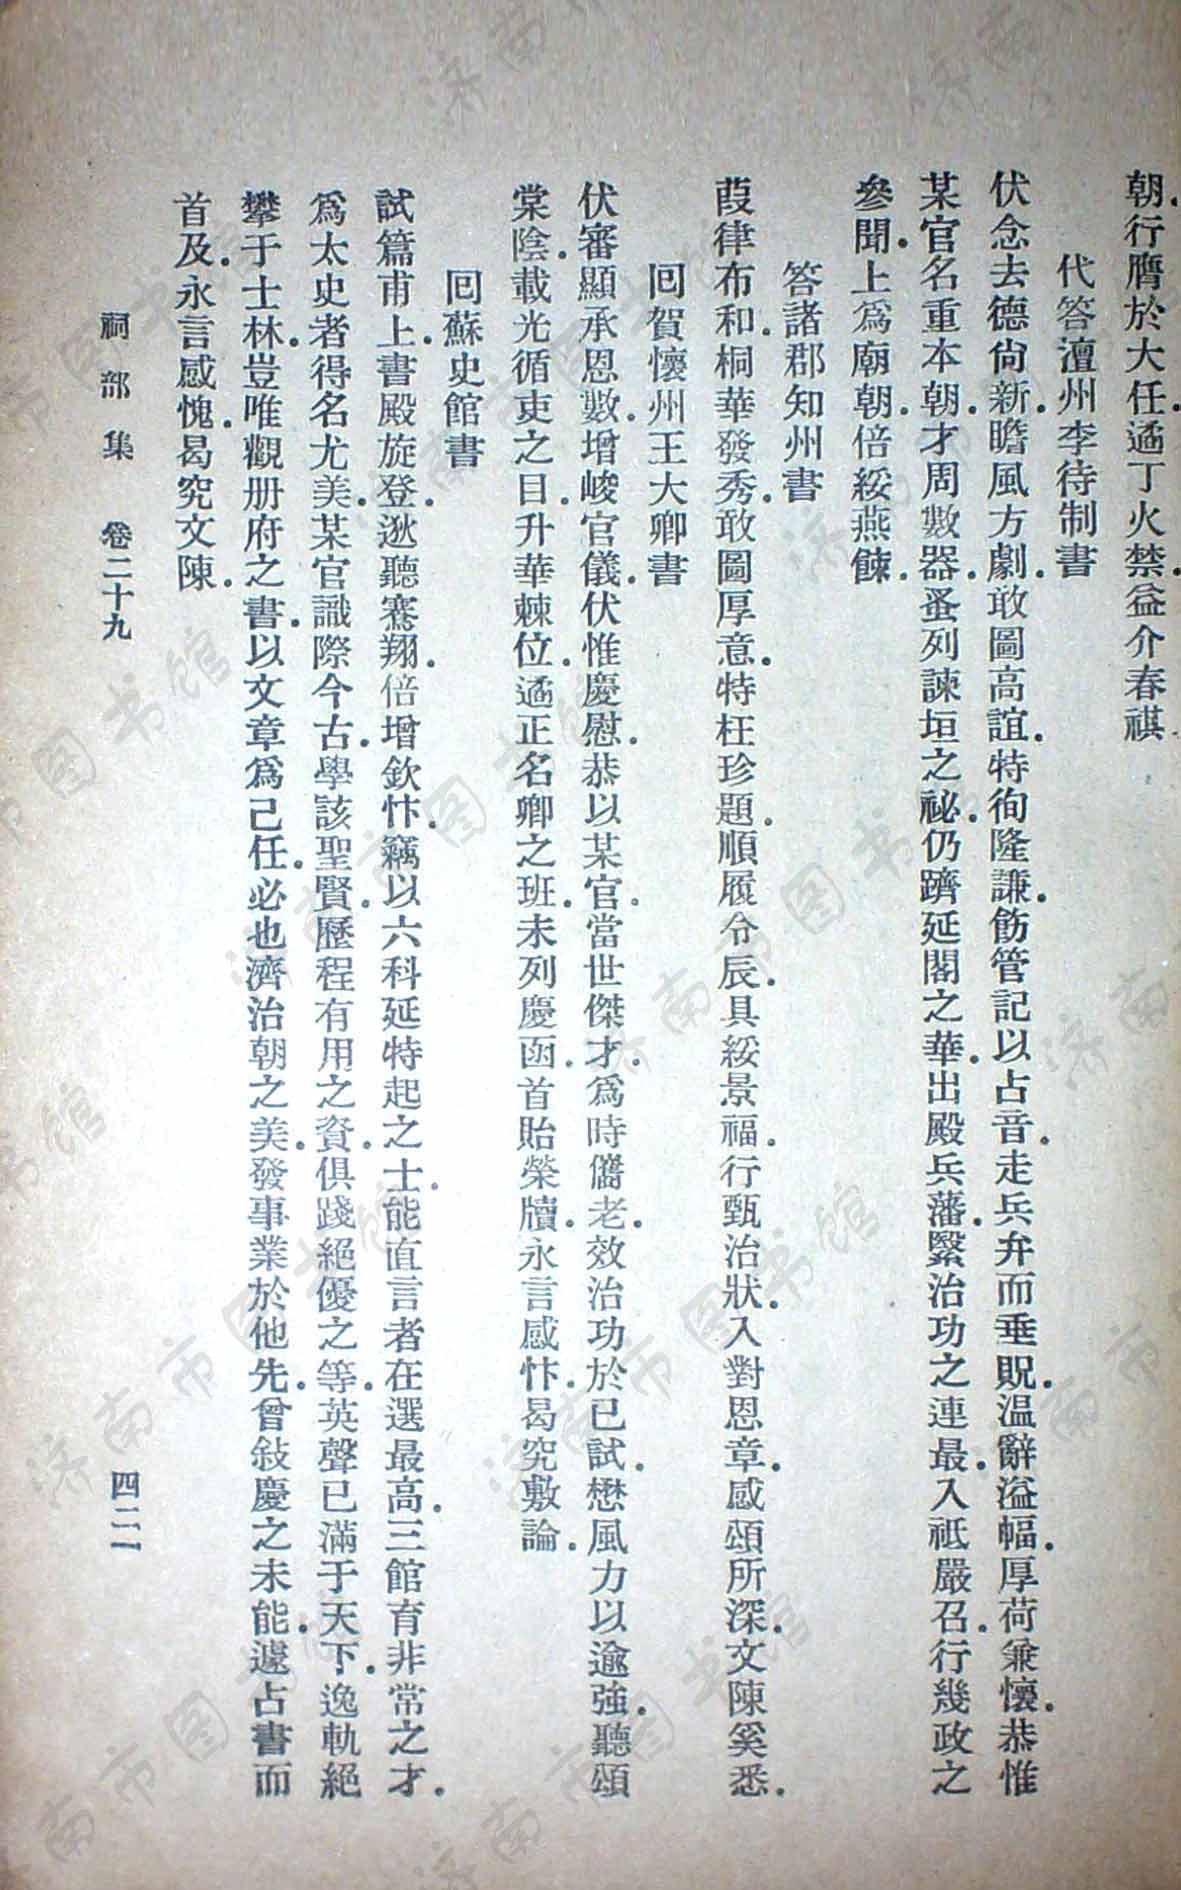 朝行膺於大任遹丁火禁益介春祺
代答澶州李待制書
伏念去德尙新瞻風方劇敢圖高誼特徇隆謙飭管記以占音走兵弁而垂貺温辭溢幅厚荷兼懷恭惟
某官名重本朝才周數器蚤列諫垣之祕仍躋延閣之華出殿兵藩緊治功之連最入祗嚴召行幾政之
參聞上爲廟朝倍綏燕餗
答諸郡知州書
葭律布和桐華發秀敢圖厚意特枉珍題順履令辰具綏景福行甄治狀入對恩章感頌所深文陳奚悉
回賀懷州王大卿書
伏審顯承恩數增峻官儀伏惟慶慰恭以某官當世傑才爲時舊老效治功於已試懋風力以逾強聽頌
棠陰載光循吏之目升華棘位遹正名卿之班未列慶函首貽榮牘永言感忭曷究敷論
回蘇史館書
試篇甫上書殿旋登逖聽騫翔倍增欽忭竊以六科延特起之士能直言者在選最高三館育非常之才
爲太史者得名尤美某官識際今古學該聖賢歷程有用之資俱踐絕優之等英聲已滿于天下逸軌絕
攀于士林豈唯觀册府之書以文章爲己任必也濟治朝之美發事業於他先曾敍慶之未能遽占書而
首及永言感愧曷究文陳
祠部集 卷二十九 四二一
济南市图书馆